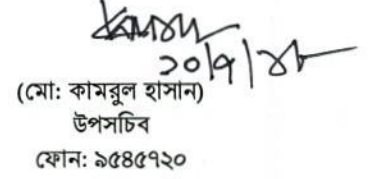 ২০/৭/১৮
(মো: কামরুল হাসান)
উপসচিব
ফোন: ৯৫৪৫৭২০